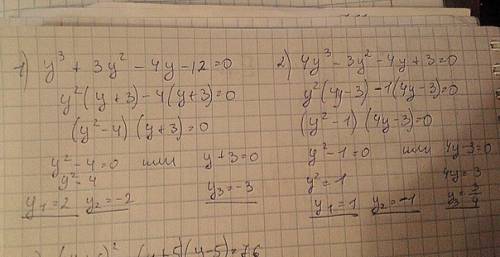 1) y³ + 3y² - 4y - 12 = 0
y²(y+3) - 4(y+3) = 0
(y²-4) (y+3) = 0
y²-4=0 или y+3=0
y²=4
y₁=2 y₂=-2 y₃=-3
2) 4y³ - 3y² - 4y + 3 = 0
y²(4y-3) - 1(4y-3) = 0
(y²-1) (4y-3) = 0
y²-1=0 или 4y-3=0
y²=1 4y=3
y₁=1 y₂=-1 y₃=3/4